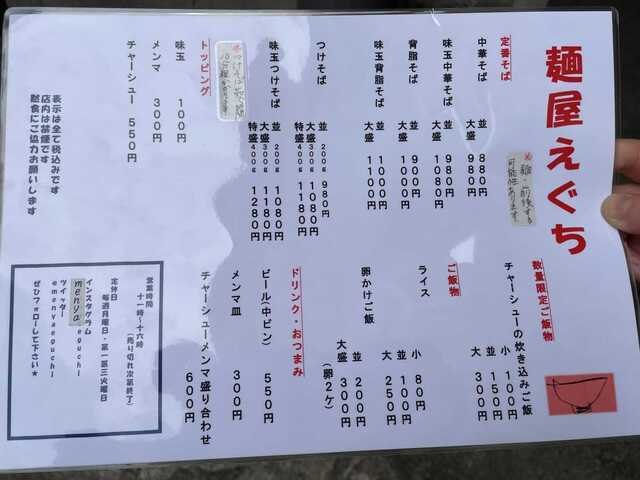 麺屋えぐち
定番そば
※麺・前後する
可能性あります
中華そば
並 880円
大盛 980円
味玉中華そば
並 980円
大盛 1080円
背脂そば
並 900円
大盛 1000円
味玉背脂そば
並 1000円
大盛 1100円
つけそば
並 200g 980円
大盛 300g 1080円
特盛 400g 1180円
味玉つけそば
並 200g 1080円
大盛 300g 1180円
特盛 400g 1280円
トッピング
味玉 100円
メンマ 300円
チャーシュー 550円
表示は全て税込みです
店内は禁煙です
黙食にご協力お願いします
数量限定ご飯物
チャーシューの炊き込みご飯
小 100円
並 150円
大 300円
ご飯物
ライス
小 80円
並 100円
大 250円
卵かけご飯
並 200円
大盛 300円
(卵2ケ)
ドリンク・おつまみ
ビール(中ビン) 550円
メンマ皿 300円
チャーシューメンマ盛り合わせ
600円
営業時間
十一時~十六時
(売り切れ次第終了)
定休日
毎週月曜日・第一第三火曜日
インスタグラム
menya eguchi
ツイッター
emenyaeguchi
ぜひフォローして下さい★